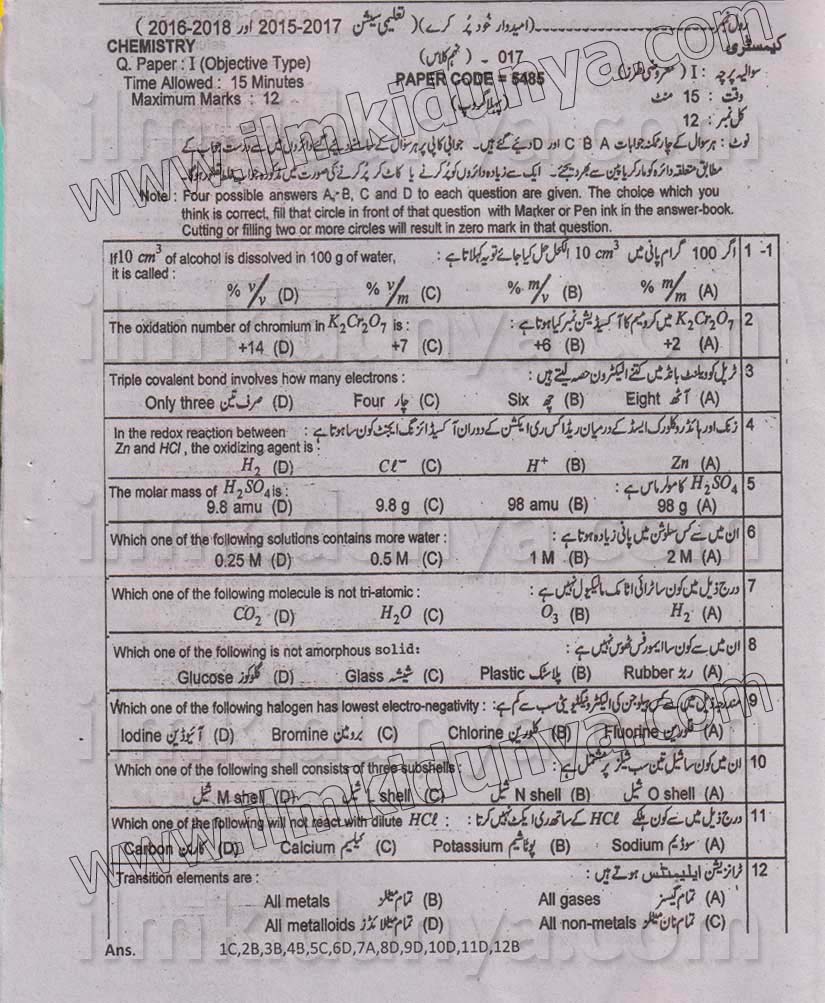 رول نمبر (امیدوار خود پُر کرے) (تعلیمی سیشن 2015-2017 اور 2016-2018)
CHEMISTRY 017 - (نہم کلاس) کیمسٹری
Q. Paper : I (Objective Type) سوالیہ پرچہ : I (معروضی طرز)
Time Allowed : 15 Minutes PAPER CODE = 5485 وقت : 15 منٹ
Maximum Marks : 12 (پہلا گروپ) کل نمبر : 12
نوٹ : ہر سوال کے چار ممکنہ جوابات A B C اور D دیئے گئے ہیں۔ جوابی کاپی پر ہر سوال کے سامنے دیئے گئے دائروں میں سے درست جواب کے
مطابق متعلقہ دائرہ کو مارکر یا پین سے بھر دیجئے۔ ایک سے زیادہ دائروں کو پُر کرنے یا کاٹ کر پُر کرنے کی صورت میں مذکورہ جواب غلط تصور ہوگا
Note : Four possible answers A, B, C and D to each question are given. The choice which you
think is correct, fill that circle in front of that question with Marker or Pen ink in the answer-book.
Cutting or filling two or more circles will result in zero mark in that question.
If 10 cm³ of alcohol is dissolved in 100 g of water, اگر 100 گرام پانی میں 10 cm³ الکحل حل کیا جائے تو یہ کہلاتا ہے : 1 -1
it is called :
% v/v (D) % v/m (C) % m/v (B) % m/m (A)
The oxidation number of chromium in K₂Cr₂O₇ is : K₂Cr₂O₇ میں کرومیم کا آکسیڈیشن نمبر کیا ہوتا ہے : 2
+14 (D) +7 (C) +6 (B) +2 (A)
Triple covalent bond involves how many electrons : ٹرپل کوویلنٹ بانڈ میں کتنے الیکٹرون حصہ لیتے ہیں : 3
Only three صرف تین (D) Four چار (C) Six چھ (B) Eight آٹھ (A)
In the redox reaction between زنک اور ہائڈروکلورک ایسڈ کے درمیان ریڈاکس ری ایکشن کے دوران آکسیڈائزنگ ایجنٹ کون سا ہوتا ہے : 4
Zn and HCl, the oxidizing agent is :
H₂ (D) Cℓ⁻ (C) H⁺ (B) Zn (A)
The molar mass of H₂SO₄ is : H₂SO₄ کا مولر ماس ہے : 5
9.8 amu (D) 9.8 g (C) 98 amu (B) 98 g (A)
Which one of the following solutions contains more water : ان میں سے کس سلوشن میں پانی زیادہ ہوتا ہے : 6
0.25 M (D) 0.5 M (C) 1 M (B) 2 M (A)
Which one of the following molecule is not tri-atomic : درج ذیل میں کون سا ٹرائی اٹامک مالیکیول نہیں ہے : 7
CO₂ (D) H₂O (C) O₃ (B) H₂ (A)
Which one of the following is not amorphous solid: ان میں سے کون سا ایمورفس ٹھوس نہیں ہے : 8
Glucose گلوکوز (D) Glass شیشہ (C) Plastic پلاسٹک (B) Rubber ربڑ (A)
Which one of the following halogen has lowest electro-negativity : مندرجہ ذیل میں سے کس ہیلوجن کی الیکٹرونیگیٹیویٹی سب سے کم ہے : 9
Iodine آئیوڈین (D) Bromine برومین (C) Chlorine کلورین (B) Fluorine فلورین (A)
Which one of the following shell consists of three subshells : ان میں کون سا شیل تین سب شیلز پر مشتمل ہے : 10
M shell شیل (D) L shell شیل (C) N shell شیل (B) O shell شیل (A)
Which one of the following will not react with dilute HCℓ : درج ذیل میں سے کون ہلکے HCℓ کے ساتھ ری ایکٹ نہیں کرتا : 11
Carbon کاربن (D) Calcium کیلسیم (C) Potassium پوٹاشیم (B) Sodium سوڈیم (A)
Transition elements are : ٹرانزیشن ایلیمنٹس ہوتے ہیں : 12
All metals تمام میٹلز (B) All gases تمام گیسز (A)
All metalloids تمام میٹلائڈز (D) All non-metals تمام نان میٹلز (C)
Ans. 1C,2B,3B,4B,5C,6D,7A,8D,9D,10D,11D,12B
www.ilmkidunya.com
www.ilmkidunya.com